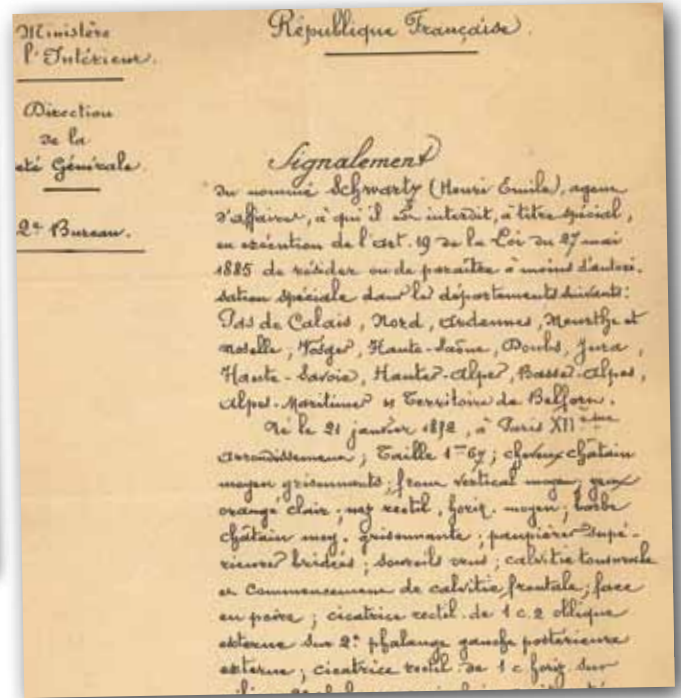 Ministère
l'Intérieur.
Direction
de la
eté Générale.
2e Bureau.
République Française.
Signalement
du nommé Schwartz (Henri Emile), agent
d'affaires, à qui il est interdit, à titre spécial,
en exécution de l'art. 19 de la Loi du 27 mai
1885 de résider ou de paraître à moins d'autori-
sation spéciale dans les départements suivants:
Pas de Calais, Nord, Ardennes, Meurthe et
Moselle, Vosges, Haute-Saône, Doubs, Jura,
Haute-Savoie, Hautes-Alpes, Basses-Alpes,
Alpes-Maritimes et Territoire de Belfort.
Né le 21 janvier 1872, à Paris XIIème
arrondissement; Taille 1m67; cheveux châtain
moyen grisonnants; front vertical moyen; yeux
orangé clair; nez rectil., horiz. moyen; barbe
châtain moy. grisonnante; paupières supé-
rieures bridées; sourcils; calvitie tonsurale
et commencement de calvitie frontale; face
en poire; cicatrice rectil. de 1 c.2 oblique
externe sur 2e phalange gauche postérieure
externe; cicatrice rectil. de 1 c horiz. sur